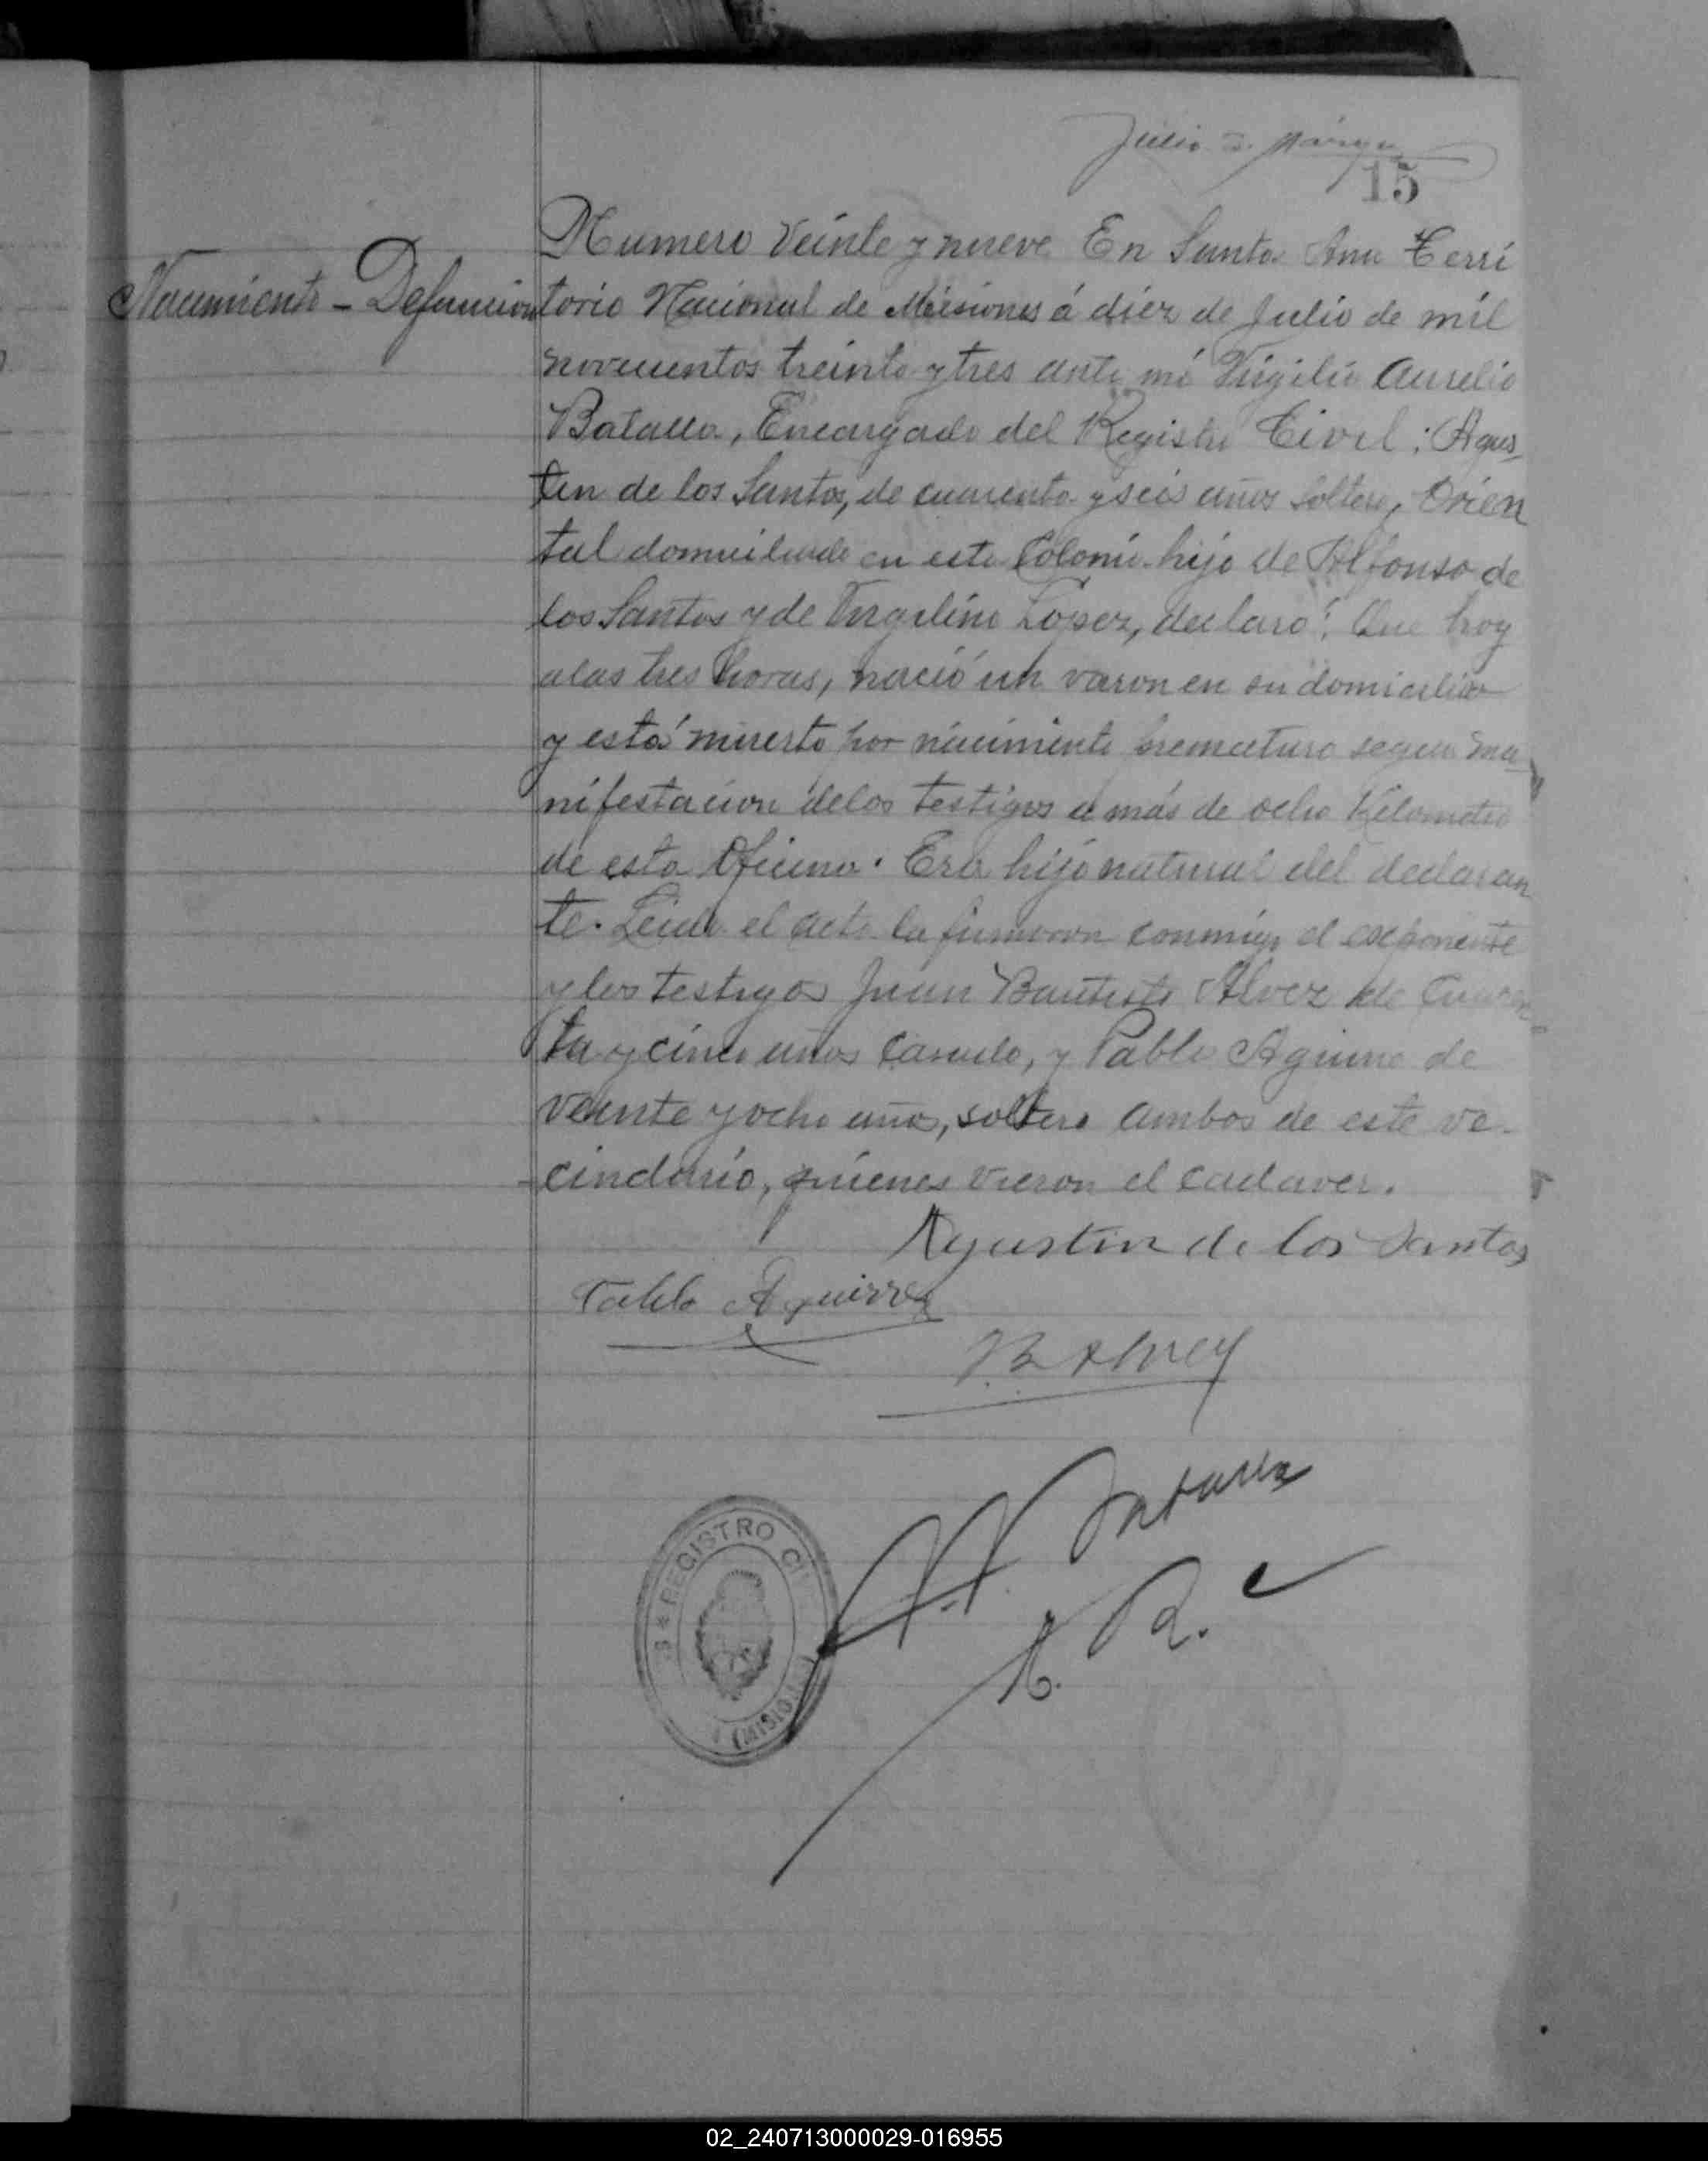 15
Numero Veinte y nueve En Santa Ana Terri
Nacimiento - Defuncion
torio Nacional de Misiones á diez de Julio de mil
novecientos treinta y tres ante mí Virgilio Aurelio
Batalla, Encargado del Registro Civil: Agus
tin de los Santos, de cuarenta y seis años soltero, Orien
tal domiciliado en esta Colonia hijo de Alfonso de
los Santos y de Virgilina Lopez, declaró: Que hoy
a las tres horas, nació un varon en su domicilio
y está muerto por nacimiento prematuro segun ma
nifestacion de los testigos a más de ocho Kilometros
de esta Oficina. Era hijo natural del declaran
te. Leida el acta la firmaron conmigo el exponente
y los testigos Juan Bautista Alvez de Cuaren
ta y cinco años Casado, y Pablo Aguirre de
veinte y ocho años, soltero ambos de este ve-
cindario, quienes vieron el cadaver.
Agustin de los Santos
Pablo Aguirre
B Alvez
REGISTRO CIV
(MISIO
02_240713000029-016955